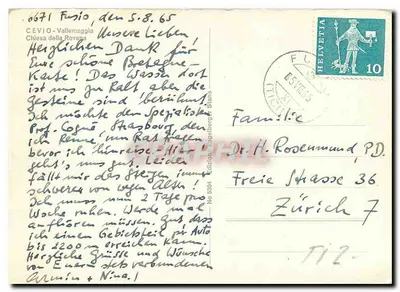 6671 Fusio, den 5.8.65
CEVIO - Vallemaggia
Chiesa della Rovana
Unsere Lieben,
Herzlichen Dank für
Eure schöne Bretagne-
Karte! Das Wasser dort
ist uns zu kalt aber die
Gesteine sind berühmt.
Ich möchte den Spezialisten
Prof. Cogné, Strasbourg, den
ich kenne, um Rat fragen
bevor ich hinreise - Hier
geht's uns gut. Leider
fällt mir das Steigen immer
schwerer von wegen Alter!
Ich muss nun 2 Tage pro
Woche ruhen. Werde mal
aufhören müssen. Gut dass
ich einen Gebietsteil per Auto
bis 2200 m erreichen kann.
Herzliche Grüsse und Wünsche
von Euern stets verbundenen
Armin + Nina!
HELVETIA
10
Familie
Dr. H. Rosenmund, P.D.
Freie Strasse 36
Zürich 7